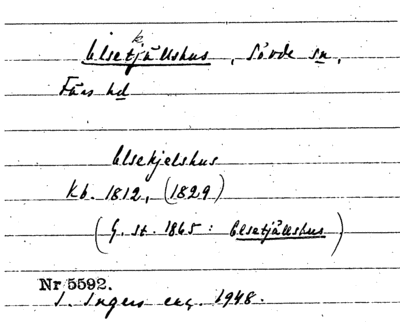 k
Elsetjällshus, Sövde sn,
Färs hd
Elsekjelshus
Kb. 1812, (1829)
(G. st. 1865: Elsetjällshus)
Nr 5592.
I. Ingers exc. 1948.